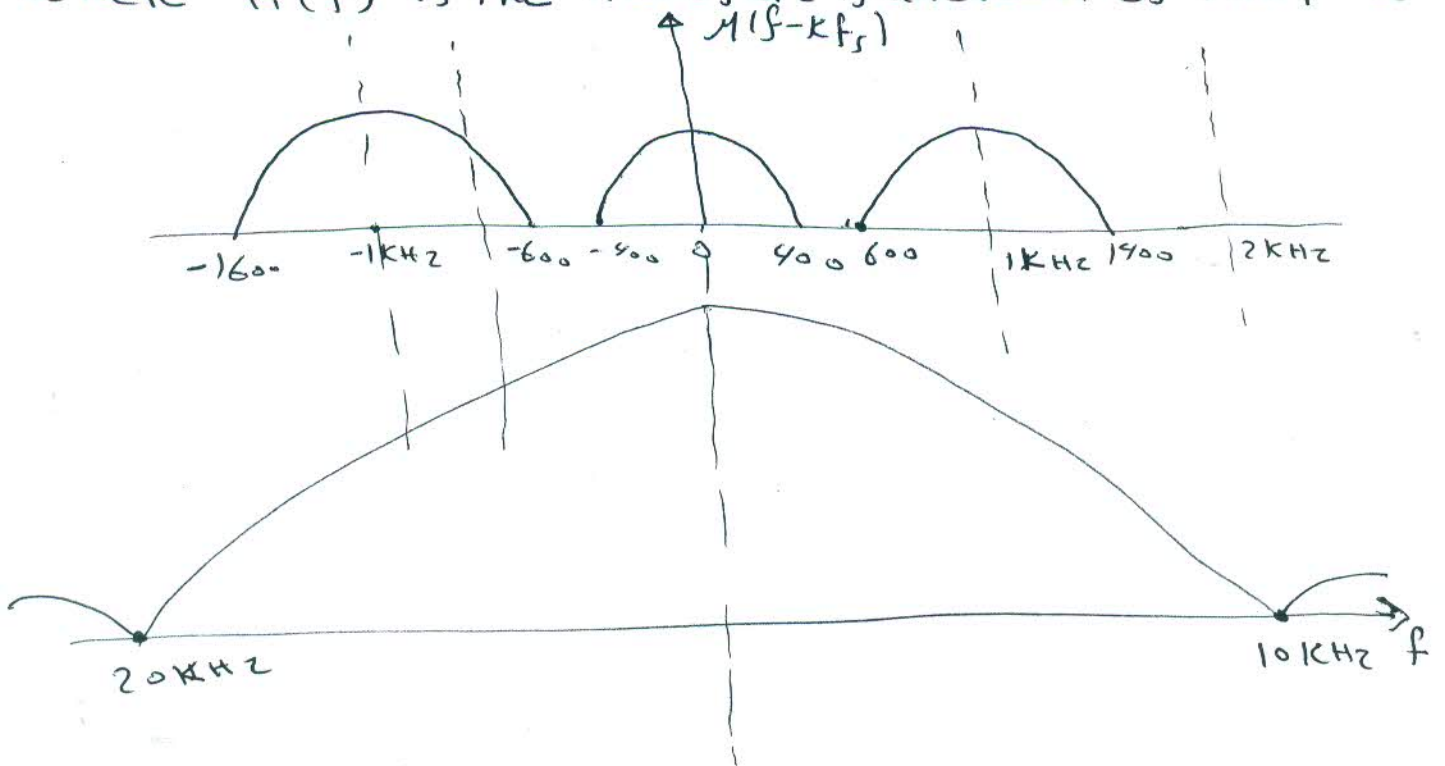 is the
M(f-kfs)
-1600 -1KHz -600 -400 0 400 600 1KHz 1400 2KHz
20KHz 10KHz f